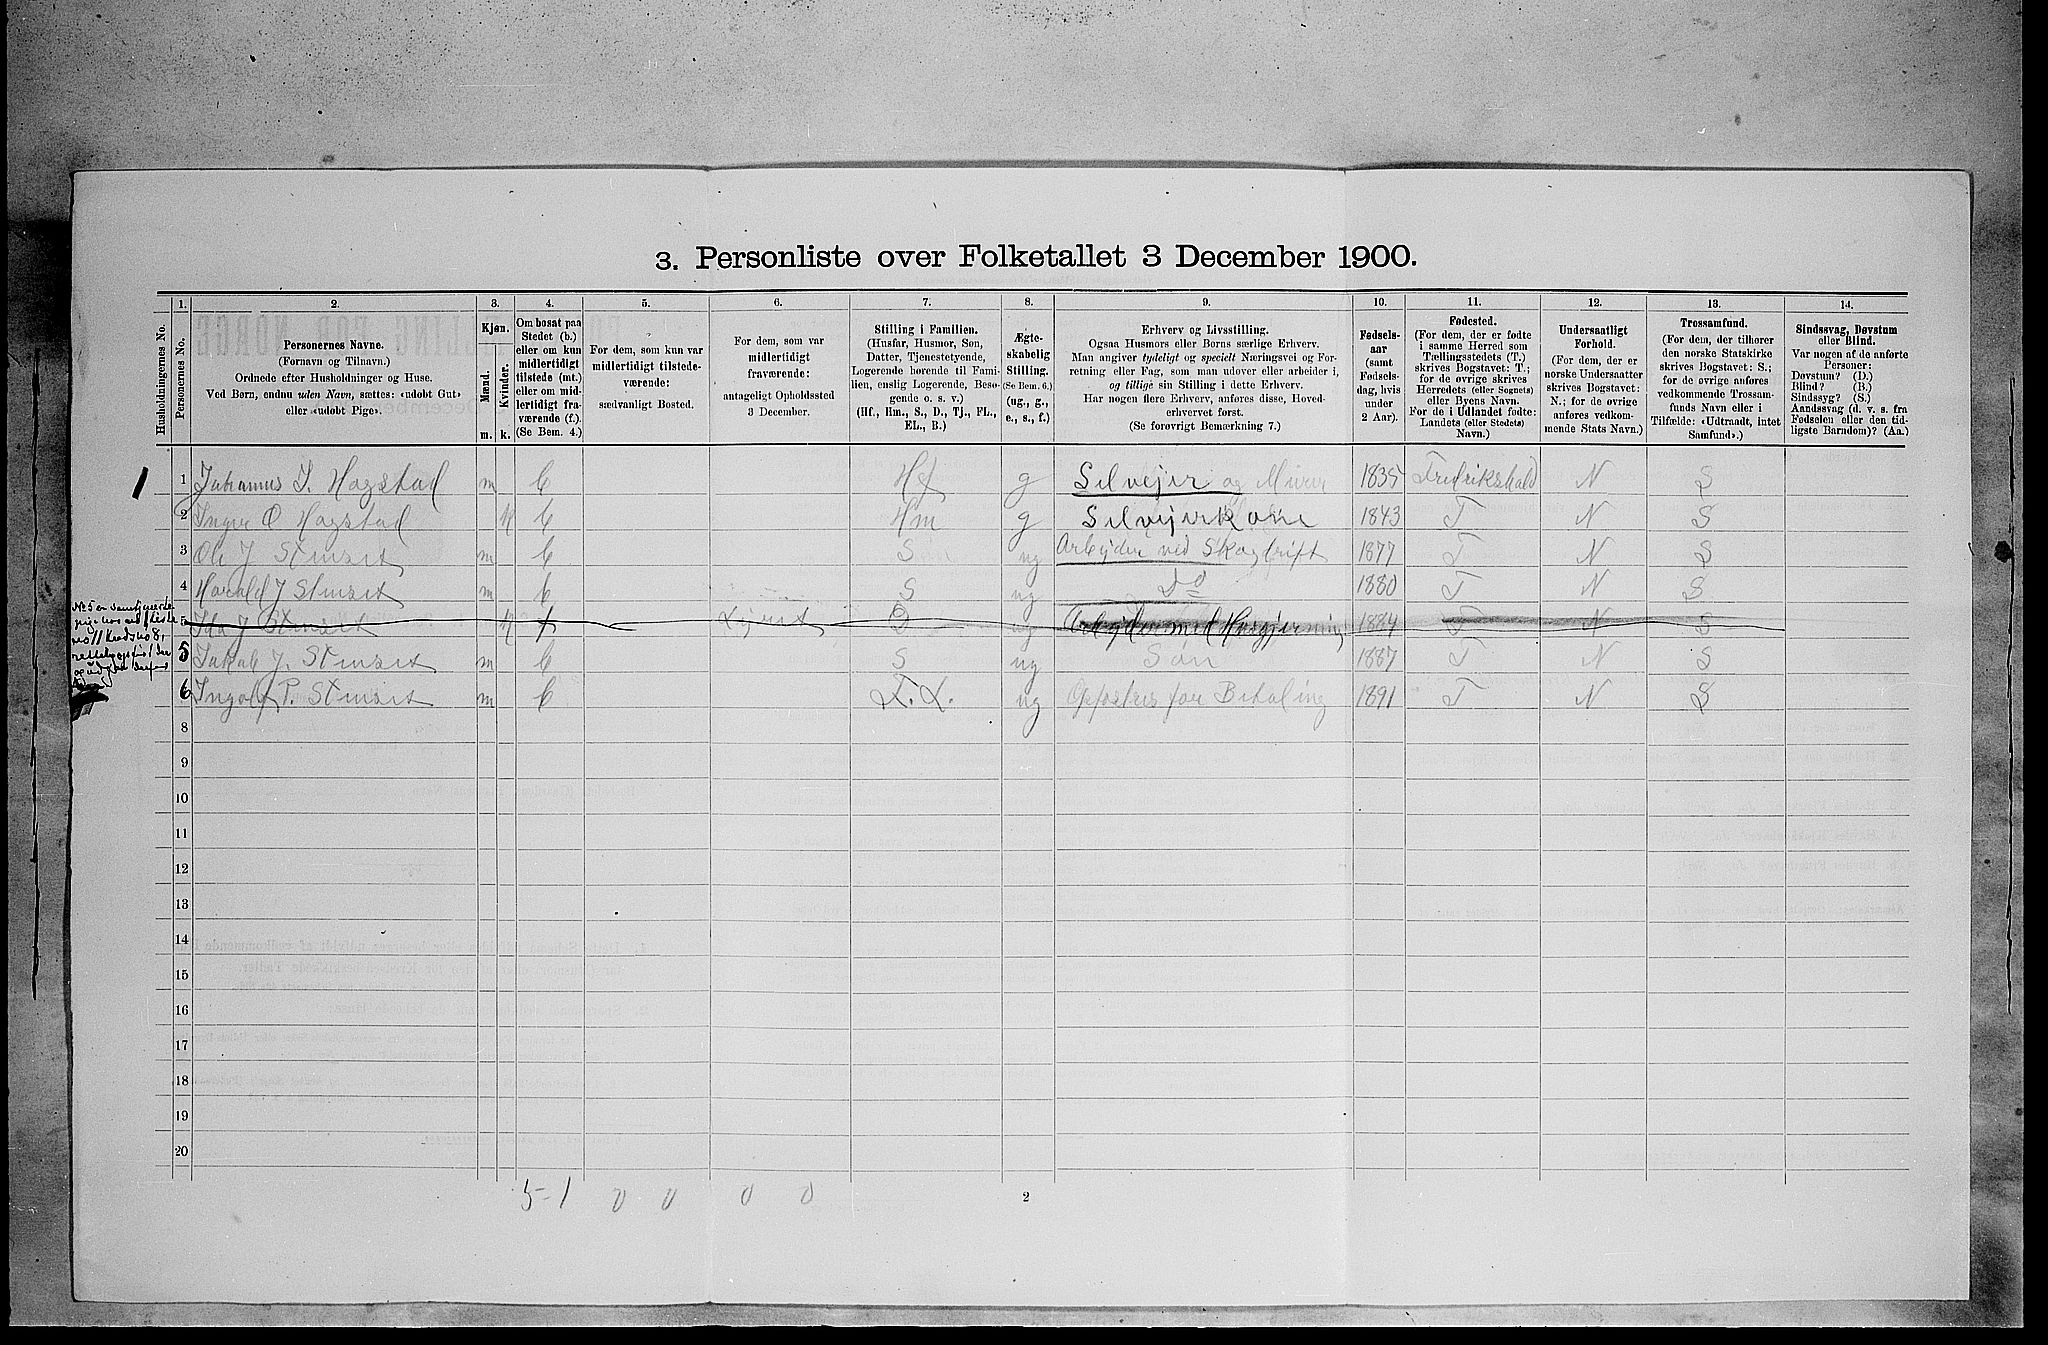 3. Personliste over Folketallet 3 December 1900.
Husholdningernes No.
1.
Personernes No.
2.
Personernes Navne.
(Fornavn og Tilnavn.)
Ordnede efter Husholdninger og Huse.
Ved Børn, endnu uden Navn, sættes: «udøbt Gut»
eller «udøbt Pige».
3.
Kjøn.
Mænd.
Kvinder.
m. k.
4.
Om bosat paa
Stedet (b.)
eller om kun
midlertidigt
tilstede (mt.)
eller om mid-
lertidigt fra-
værende (f.).
(Se Bem. 4.)
5.
For dem, som kun var
midlertidigt tilstede-
værende:
sædvanligt Bosted.
6.
For dem, som var
midlertidigt
fraværende:
antageligt Opholdssted
3 December.
7.
Stilling i Familien.
(Husfar, Husmor, Søn,
Datter, Tjenestetyende,
Logerende hørende til Fami-
lien, enslig Logerende, Besø-
gende o. s. v.)
(Hf., Hm., S., D., Tj., FL.,
EL., B.)
8.
Ægte-
skabelig
Stilling.
(Se Bem. 6.)
(ug., g.,
e., s., f.)
9.
Erhverv og Livsstilling.
Ogsaa Husmors eller Børns særlige Erhverv.
Man angiver tydeligt og specielt Næringsvei og For-
retning eller Fag, som man udøver eller arbeider i,
og tillige sin Stilling i dette Erhverv.
Har nogen flere Erhverv, anføres disse, Hoved-
erhvervet først.
(Se forøvrigt Bemærkning 7.)
10.
Fødsels-
aar
(samt
Fødsels-
dag, hvis
under
2 Aar).
11.
Fødested.
(For dem, der er fødte
i samme Herred som
Tællingsstedets (T.)
skrives Bogstavet: T.;
for de øvrige skrives
Herredets (eller Sognets)
eller Byens Navn.
For de i Udlandet fødte:
Landets (eller Stedets)
Navn.)
12.
Undersaatligt
Forhold.
(For dem, der er
norske Undersaatter
skrives Bogstavet:
N.; for de øvrige
anføres vedkom-
mende Stats Navn.)
13.
Trossamfund.
(For dem, der tilhører
den norske Statskirke
skrives Bogstavet: S.;
for de øvrige anføres
vedkommende Trossam-
funds Navn eller i
Tilfælde: «Udtraadt, intet
Samfund».)
14.
Sindssvag, Døvstum
eller Blind.
Var nogen af de anførte
Personer:
Døvstum? (D.)
Blind? (B.)
Sindssyg? (S.)
Aandssvag (d. v. s. fra
Fødselen eller den tid-
ligste Barndom)? (Aa.)
1 1 Johannus J. Hagstad m b Hf g Selvejer og Murer 1835 Fredrikshald N S
2 Inger O Hagstad K b Hm g Selvejerkone 1843 T N S
3 Ole J Stensæt m b S ug Arbejder ved Skogdrift 1877 T N S
4 Harald J Stensæt m b S ug Do 1880 T N S
5 Ida J Stensæt K f D ug Arbejder med Husgjerning 1884 T N S
5 Jakob J. Stensæt m b S ug Søn 1887 T N S
6 Ingolf P. Stensæt m b F.L. ug Opfostres for Betaling 1891 T N S
8
9
10
11
12
13
14
15
16
17
18
19
20
5-1 0 0 0 0
2